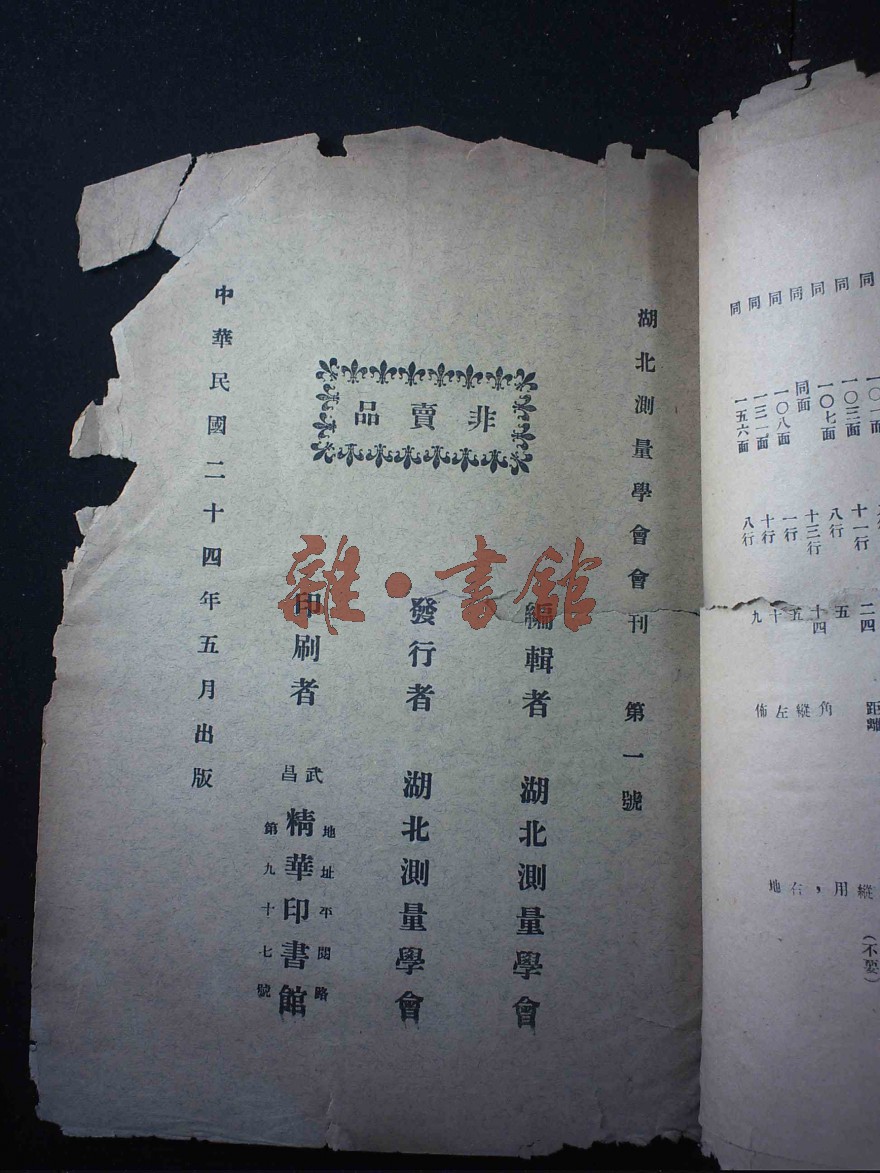 同
同
同
同
同
同
同
一〇三面
一〇七面
同面
一〇八面
一三一面
一五六面
十一行
八行
十三行
一行
十行
八行
二四
五
十四
五
十
九
距離
角
縱
左
佈
縱
用，
右
地
（不要）
湖北測量學會會刊 第一號
非賣品
編輯者 湖北測量學會
發行者 湖北測量學會
印刷者 武昌 精華印書館
地址平閱路
第九十七號
中華民國二十四年五月出版
雜·書館